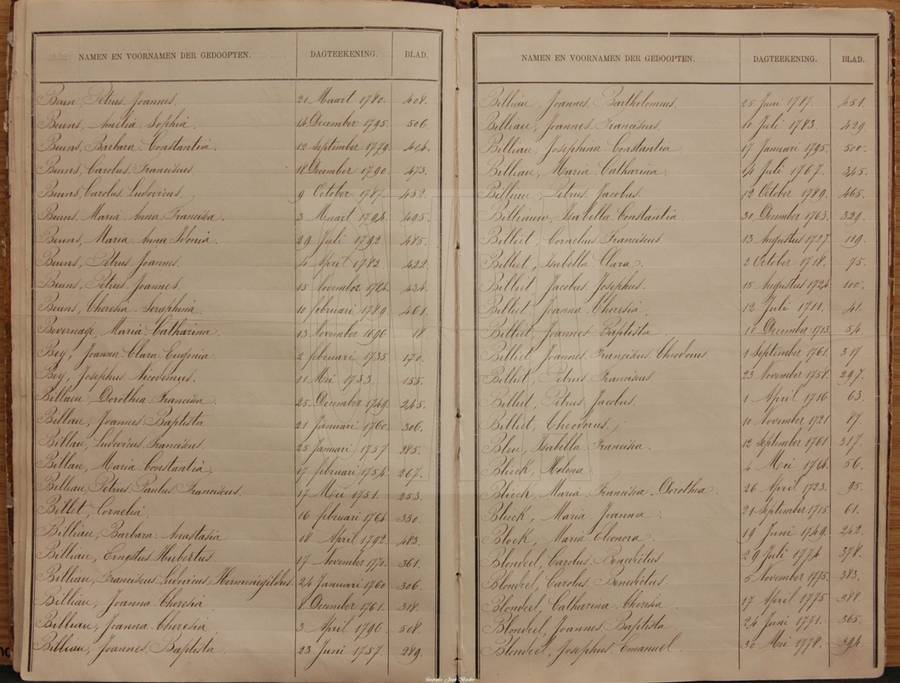 NAMEN EN VOORNAMEN DER GEDOOPTEN. DAGTEEKENING. BLAD.
Petrus Joannes 21 Maart 1780. 408.
Beuns, Amelia Sophia 14 December 1795. 506
Beuns, Barbara Constantia. 12 September 1779. 404.
Beuns, Carolus Franciscus 18 December 1790. 473.
Beuns, Carolus Ludovicus. 9 October 1787. 452.
Beuns, Maria Anna Francisca. 3 Maart 1794. 495.
Beuns, Maria Anna 29 Juli 1792. 485.
Beuns, Petrus Joannes. 4 April 1782. 422.
Beuns, Petrus Joannes. 15 November 1784. 434.
Beuns, Theresia Seraphina. 10 februari 1789. 461.
Bevernage, Maria Catharina. 13 November 1696 18
Bey, Joanna Clara Eugenia 2 februari 1735 170.
Bey, Josephus Nicodemus. 11 Mei 1733. 155.
Billiau, Dorothea Francisca 25 December 1749. 245.
Billiau, Joannes Baptista 21 Januari 1760. 306.
Billiau, Ludovicus Franciscus. 25 Januari 1757 285.
Billiau, Maria Constantia 17 februari 1754. 267.
Billiau, Petrus Paulus Franciscus. 17 Mei 1751. 253.
Billet, Cornelia 16 februari 1764 330.
Billiau, Barbara Anastasia 18 April 1792. 483.
Billiau, Ernestus Hubertus 17 November 1770. 361.
Billiau, Franciscus Ludovicus Hermenegildus. 24 Januari 1760. 306.
Billiau, Joanna Theresia 8 December 1761. 318.
Billiau, Joanna Theresia. 3 April 1796. 508.
Billiau, Joannes Baptista 23 Juni 1757. 289.
NAMEN EN VOORNAMEN DER GEDOOPTEN. DAGTEEKENING. BLAD.
Billiau, Joannes Bartholomeus. 25 Juni 1787. 451.
Billiau, Joannes Franciscus. 10 Juli 1783. 429
Billiau, Josephina Constantia 17 Januari 1795. 500.
Billiau, Maria Catharina. 14 Juli 1767. 345.
Billiau, Petrus Jacobus. 12 October 1789. 465.
Billiauw, Isabella Constantia 30 December 1763. 329.
Billiet, Cornelius Franciscus 13 Augustus 1727. 119.
Billiet, Isabella Clara. 2 October 1718. 75.
Billiet, Jacobus Josephus. 15 Augustus 1724 100.
Billiet, Joanna Theresia 12 Juli 1711. 41.
Billiet, Joannes Baptista 10 December 1713 54.
Billiet, Joannes Franciscus Theodorus 1 September 1761. 317
Billiet, Petrus Franciscus 23 November 1758. 297.
Billiet, Petrus Jacobus. 1 April 1716 63.
Billiet, Theodorus. 10 November 1721 87.
Bleu, Isabella Francisca. 12 September 1761 317.
Blieck, Helena. 4 Mei 56.
Blieck, Maria Francisca Dorothea. 26 April 1723. 95.
Blieck, Maria Joanna. 21 September 1715 61.
Block, Maria Eleonora 19 Juni 1749. 242.
Blondeel, Carolus Benedictus. 29 Juli 1774. 378.
Blondeel, Carolus Benedictus 5 November 1775. 383.
Blondeel, Catharina Theresia 17 April 1775 388
Blondeel, Joannes Baptista 24 Juni 1771. 365.
Blondeel, Josephus Emanuel 30 Mei 1778. 394.